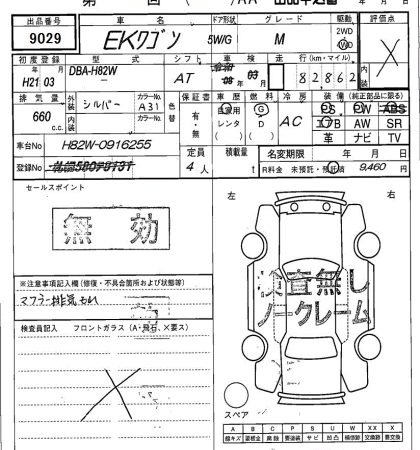 出品番号 車名 ドア形状 グレード 駆動 評価点
9029 EKワゴン 5W/G M 2WD WD
初度登録 型式 シフト 車検 走行(km・マイル) 内装
H21年 03月 DBA-H82W AT 年 03月 82862
排気量 外装 シルバー カラーNo. A31 色替 保証書 車歴 燃料 冷房 装備 (純正部品に限る)
660 c.c. 内装 カラーNo. 有・無 自家用 レンタ G D AC PS PW ABS
B AW SR
革 ナビ TV
車台No H82W-0916255 定員 4人 積載量 t 名変期限 年 月 日
登録No R料金 未預託・預託済 9,460円
セールスポイント
無効
左 右
※注意事項記入欄(修復・不具合箇所および状態等)
マフラー排気もれ
検査員記入 フロントガラス(A・飛石、×要ス)
査無し
ノークレーム
スペア
A B C P S U W XX X
線キズ 要板金 腐蝕 要塗装 サビ 凹凸 補修跡 交換跡 要交換